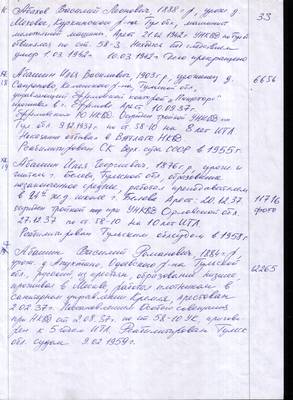 Абахов Василий Ионович, 1888 г.р., урож. д.
Миховка, Куркинского р-на Тул обл, машинист
молотилки машины. Арест. 21.02.1942г УНКВД по Тул обл
обвинялся по ст. 58-3. Находясь под следствием
умер 1.03.1942г. 10.03.1942г. Дело прекращено
33
Абашин Илья Васильевич, 1903г.р. уроженец д.
Сапроново, Каменского р-на, Тульской обл,
управляющий Ефремовской конторой "Пищеторг"
проживал в г. Ефремов Арест. 10.09.37г.
Ефремовским РО НКВД. Осужден тройкой УНКВД по
Тул обл. 9.12.1937г. по ст 58-10 на 8 лет ИТЛ
Наказание отбывал в Вятлаге НКВД.
Реабилитирован СК Верх суда СССР в 1955г.
6656
Абашин Илья Георгиевич, 1876г.р, урож. и
житель г. Белева, Тульской обл, образование
незаконченное среднее, работал преподавателем
в ж.д. школе г. Белева Арест. 20.12.37
осужден тройкой при УНКВД Орловской обл.
27.12.37 по ст 58-10 на 10 лет ИТЛ.
Реабилитирован Тульским облсудом в 1958г
11716
фото
Абашкин Василий Романович, 1884г.р.
урож. д. Одоевского р-на Тульской
обл, русский, из крестьян, образование низшее
проживал в Москве, работал плотником в
санитарном управлении Кремля, арестован
2.02.37г. Постановлением Особого совещания
при НКВД от 2.08.37г. по ст 58-10 УК, приговорен
к 5 годам ИТЛ. Реабилитирован Тульск
обл. судом 9.02.1959г.
12265